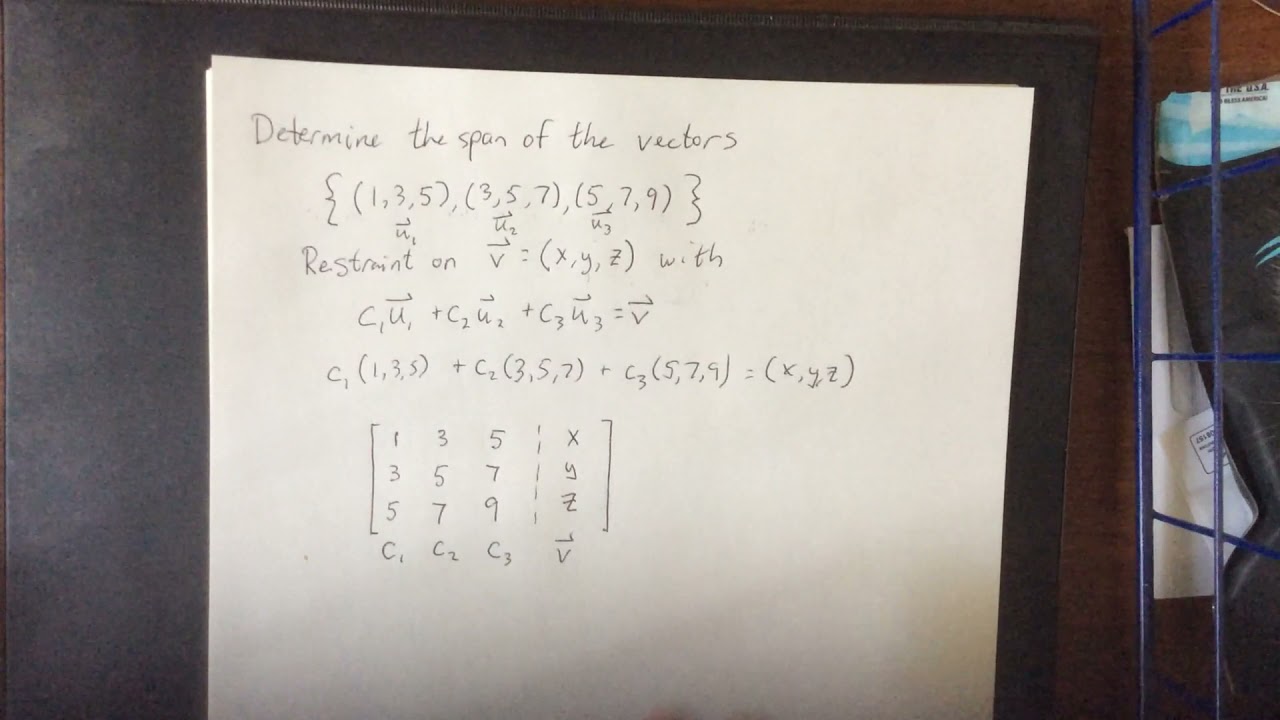 Determine the span of the vectors
{(1,3,5),(3,5,7),(5,7,9)}
u⃗₁ u⃗₂ u⃗₃
Restraint on v⃗ = (x,y,z) with
c₁u⃗₁ + c₂u⃗₂ + c₃u⃗₃ = v⃗
c₁(1,3,5) + c₂(3,5,7) + c₃(5,7,9) = (x,y,z)
1 3 5 ¦ x
3 5 7 ¦ y
5 7 9 ¦ z
c₁ c₂ c₃ v⃗
THE U.S.A.